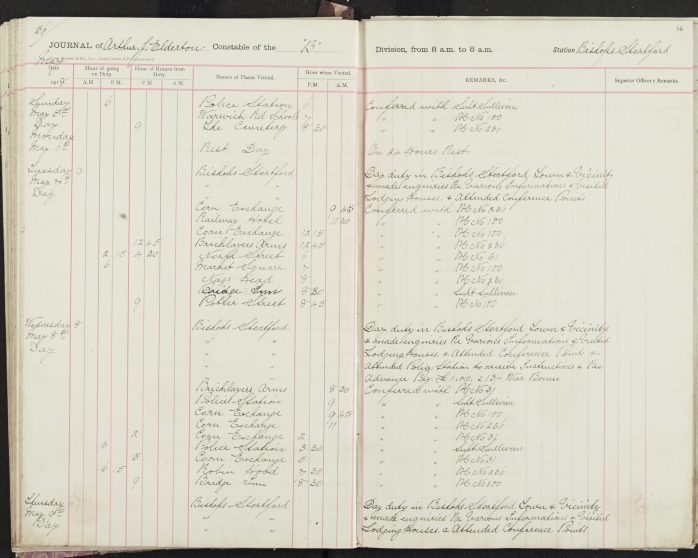 59
JOURNAL of Arthur J. Elderton Constable of the "B"
Date 1918
Hour of going on Duty. P.M. A.M.
Hour of Return from Duty. P.M. A.M.
Names of Places Visited.
Hour when Visited. P.M. A.M.
Sunday 6 Police Station 6
May 5th Warwick Rd Schools 7
Day 9 The Cemetery 8 30
Monday
May 6th Rest Day
Tuesday 9 Bishops Stortford
May 7th " "
Day " "
Corn Exchange 9 45
Railway Hotel 10 30
Corn Exchange 12 15
12 45 Bricklayers Arms 12 45
2 15 4 30 North Street 6
6 Market Square 7
Nags Head 8
Bridge Inn 8 30
9 Potter Street 8 45
Wednesday 8 Bishops Stortford
May 8th " "
Day " "
" "
" "
Bricklayers Arms 8 30
Police Station 9
Corn Exchange 9 45
Corn Exchange 11
2 Corn Exchange 2
3 Police Station 3 30
5 Corn Exchange 5
6 15 Robin Hood 7 30
9 Bridge Inn 8 30
Thursday Bishops Stortford
May 9th " "
Day " "
56
Division, from 8 a.m. to 8 a.m. Station Bishops Stortford
REMARKS, &c. Superior Officer's Remarks.
Conferred with Supt Sullivan
" " PC No 100
" " PC No 236
On 24 Hours Rest
Day duty in Bishops Stortford Town & Vicinity
& made enquiries Re Various Informations & Visited
Lodging Houses. & Attended Conference Points
Conferred with PC No 236
" " PC No 100
" " PC No 100
" " PC No 236
" " PC No 31
" " PC No 100
" " PC No 236
" " Supt Sullivan
" " PC No 100
Day duty in Bishops Stortford Town & Vicinity
& made enquiries Re Various Informations & Visited
Lodging Houses, & Attended Conference Points &
Attended Police Station to receive Instructions & Pae
Advance Pay War Bonus
Conferred with PC No 31
" " Supt Sullivan
" " PC No 100
" " PC No 236
" " PC No 31
" " Supt Sullivan
" " PC No 31
" " PC No 236
" " PC No 100
Day duty in Bishops Stortford Town & Vicinity
& made enquiries Re Various Informations & Visited
Lodging Houses. & Attended Conference Points